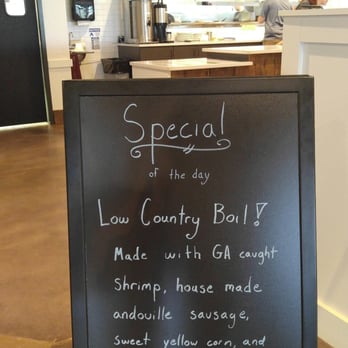 Special
of the day
Low Country Boil!
Made with GA caught
Shrimp, house made
andouille sausage,
sweet yellow corn, and